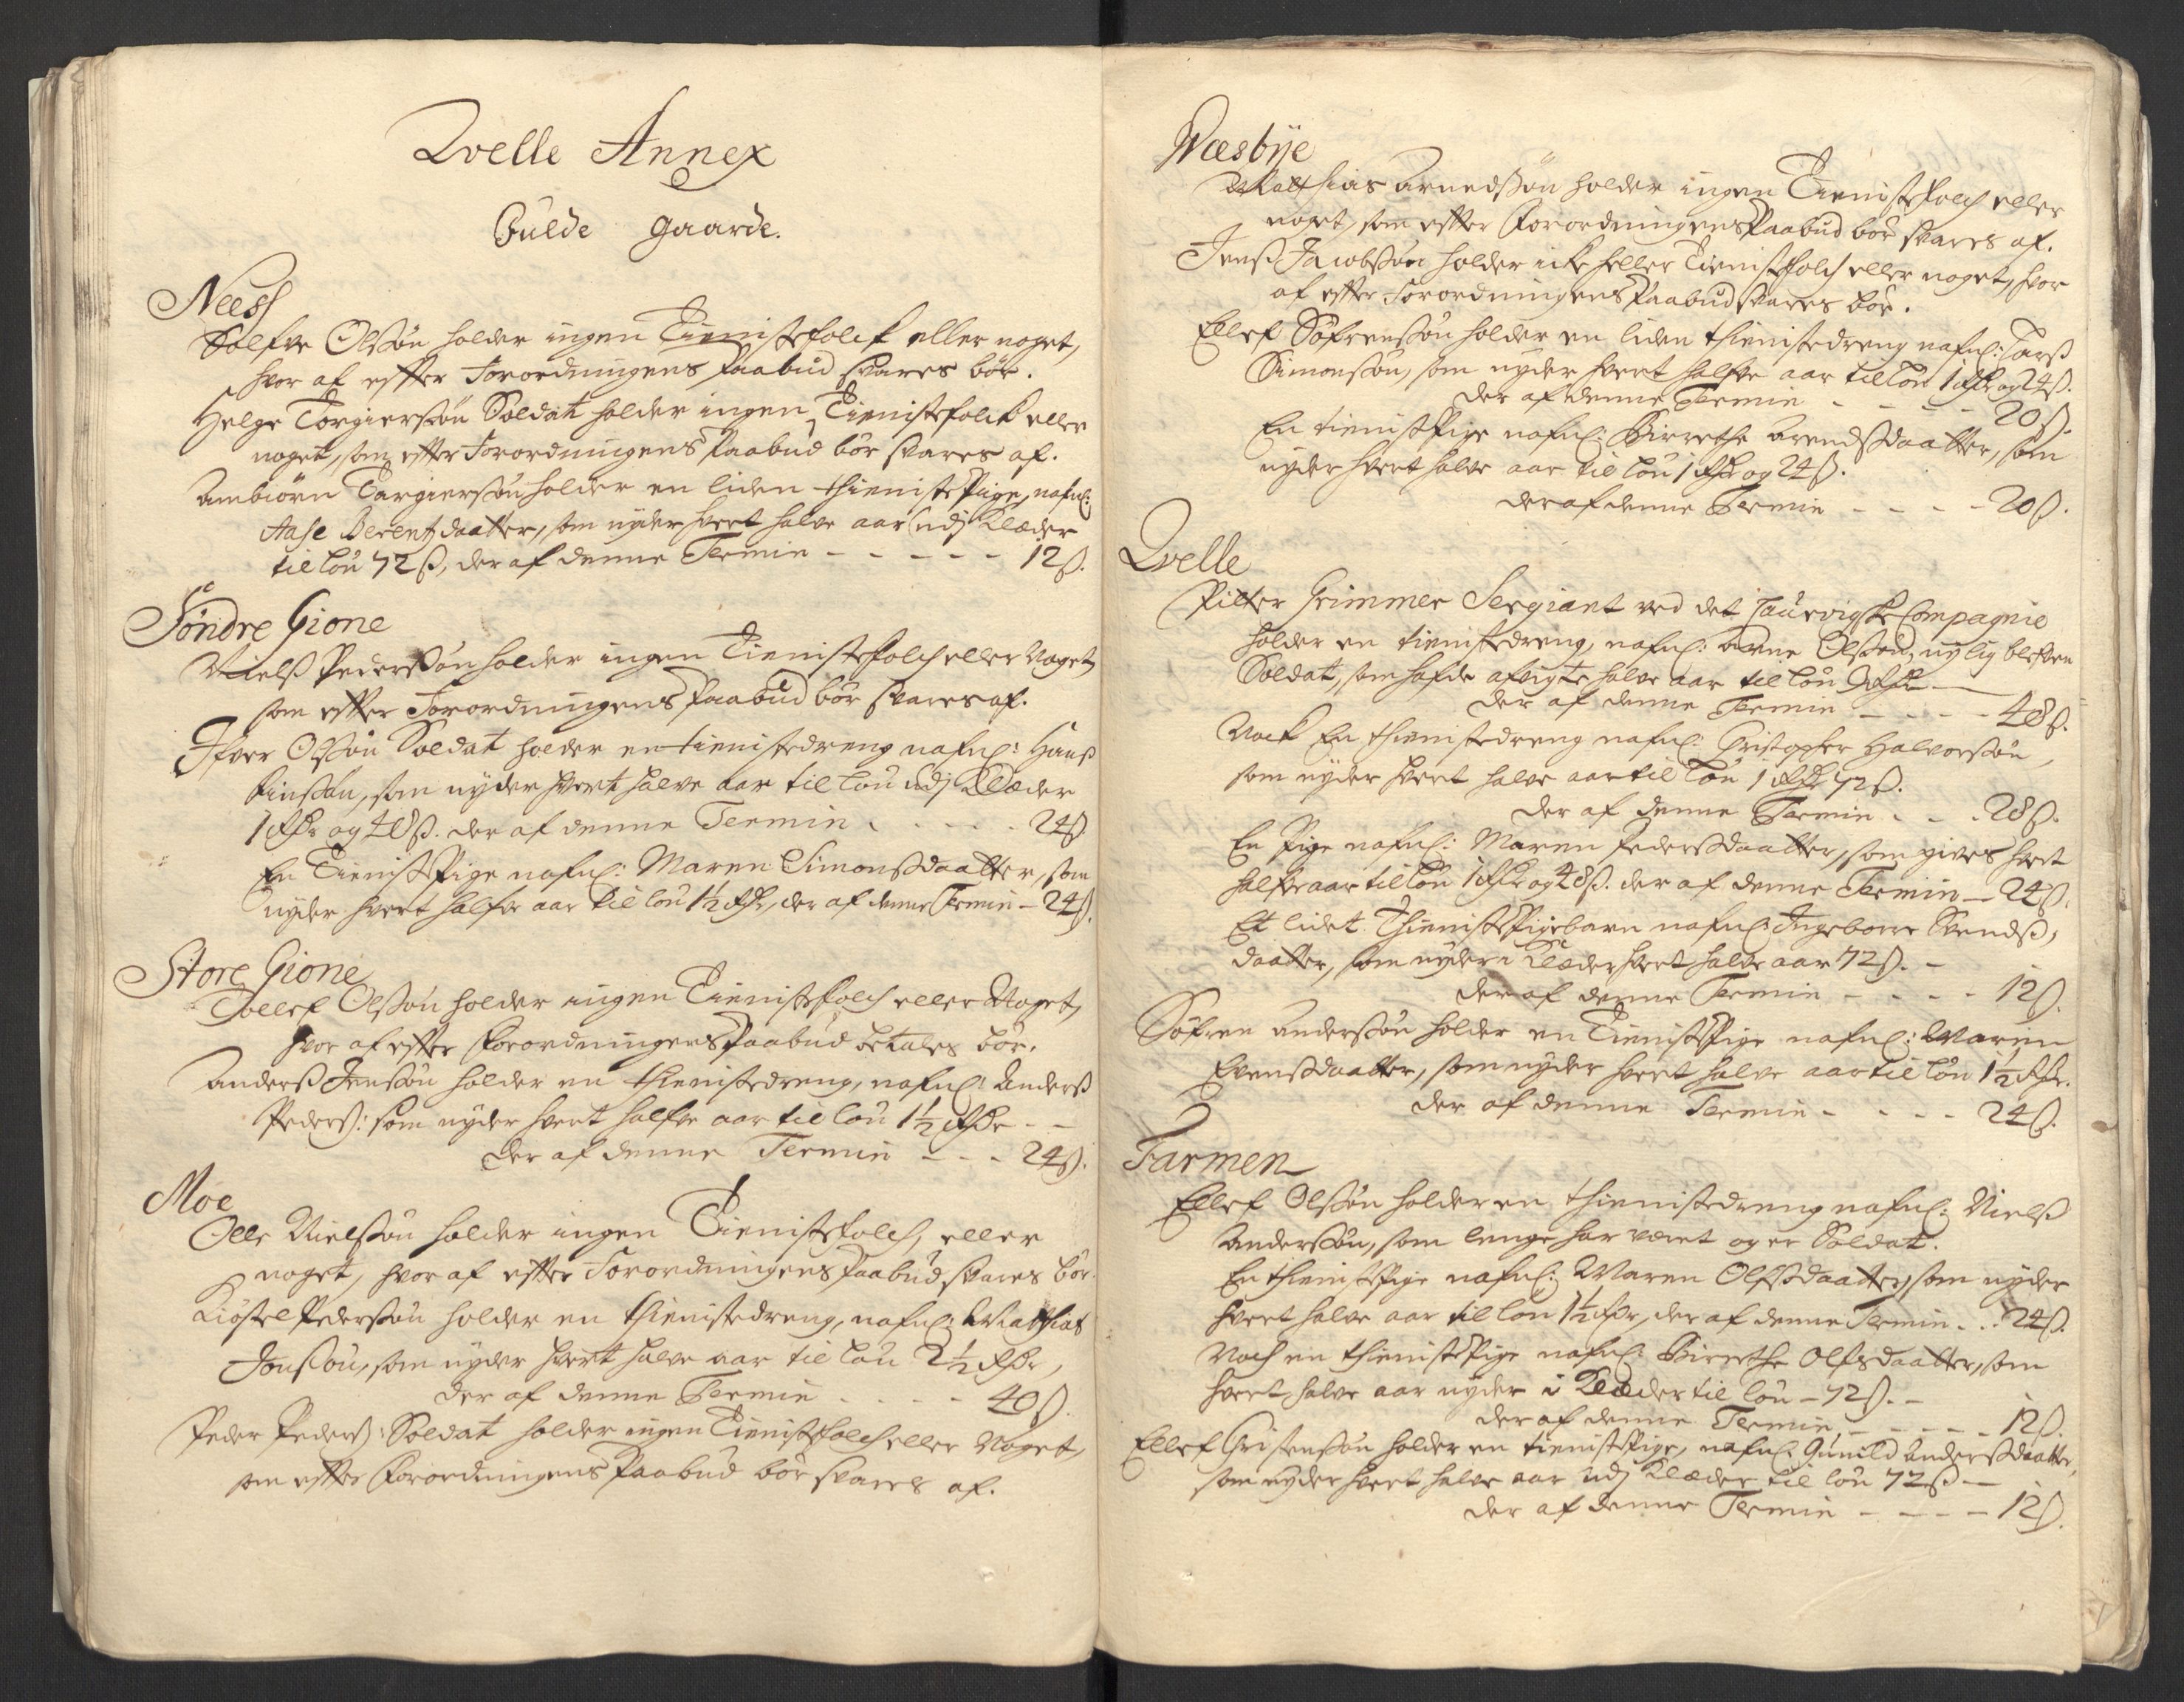 Qvelle Annex
Fulde gaarde.
Neess
Sølfve Olssøn holder ingen Tienistefolck eller noget,
hvor af efter Forordningens Paabud svares bør.
Helge Torgierssøn Soldat holder ingen Tienistefolck eller
noget, som efter Forordningens Paabud bør svares af.
Ambiørn Targierssøn holder en liden thieniste Pige, nafnl:
Aase Berentzdaatter, som nyder hvert halve aar udj Klæder
til løn 72 ß, der af denne Termin - - - - - 12 ß.
Søndre Gione
Nielß Pederssøn holder ingen Tienistefolch eller Noget,
som efter Forordningens Paabud bør svares af.
Ifver Olssøn Soldat holder en tienistedreng nafnl: Hanß
Finssøn, som nyder hvert halve aar til løn udj Klæder
1 Rdr og 48 ß. der af denne Termin - - - - 24 ß
En Tieniste Pige nafnl: Maren Simonßdaatter, som
nyder hvert halfve aar til løn 1½ Rdr, der af denne Termin - 24 ß.
Store Gione
Tollef Olssøn holder ingen Tienistefolch eller Noget,
hvor af efter Forordningens Paabud betales bør.
Anderß Jenssøn holder en thienistedreng, nafnl: Anderß
Pederß: som nyder hvert halfve aar til løn 1½ Rdr - -
der af denne Termin - - - 24 ß.
Moe
Olle Nielssøn holder ingen Tienistefolch, eller
noget, hvor af efter Forordningens Paabud svares bør.
Kiøstel Pederssøn holder en thienistedreng, nafnl: Mathias
Jonssøn, som nyder hvert halve aar til løn 2½ Rdr,
der af denne Termin - - - - 40 ß.
Peder Pederß: Soldat holder ingen Tienistefolch eller Noget,
som efter Forordningens Paabud bør svares af.
Næsbÿe
Matthias Arnedssøn holder ingen Tienistefolch eller
noget, som efter Forordningens Paabud bør svares af.
Jenß Jacobssøn holder icke heller Tienistefolch eller noget, hvor
af efter Forordningens Paabud svares bør.
Ellef Søfrenssøn holder en liden thienistedreng nafnl: Larß
Simonssøn, som nyder hvert halfve aar til løn 1 Rdr og 24 ß.
der af denne Termin - - - - 20 ß.
En tieniste Pige nafnl: Birrethe Arendßdaatter, som
nyder hvert halve aar til løn 1 Rdr og 24 ß.
der af denne Termin - - - - 20 ß.
Qvelle
Pitter Grimmer Sergiant ved det Laurvigske Compagnie
holder en tienistedreng, nafnl: Arne Olssøn, nylig blefven
Soldat, som hafde afvigte halve aar til løn 3 Rdr -
der af denne Termin - - - - 48 ß.
Nock En thienistedreng nafnl: Christopher Halvorssøn,
som nyder hvert halve aar til løn 1 Rdr 72 ß.
der af denne Termin - - - 28 ß.
En Pige nafnl: Maren Pederßdaatter, som gives hvert
halfve aar til løn 1 Rdr og 48 ß. der af denne Termin - 24 ß.
Et lidet Thieniste Pigebarn nafnl: Ingeborre Svendß,
daatter, som nyder i Klæder hvert halve aar 72 ß. -
der af denne Termin - - - - 12 ß.
Søfren Anderssøn holder en Tieniste Pige nafnl: Maren
Evenßdaatter, som nyder hvert halve aar til løn 1½ Rdr.
der af denne Termin - - - - 24 ß.
Farmen
Ellef Olssøn holder en thienistedreng nafnl: Nielß
Anderssøn, som lenge har været og er Soldat.
En thieniste Pige nafnl: Maren Olßdaatter, som nyder
hvert halve aar til løn 1½ Rdr, der af denne Termin - - 24 ß.
Noch en thieniste Pige nafnl: Birrethe Olfsdaatter, som
hvert halve aar nyder i Klæder til løn - 72 ß. -
der af denne Termin - - - - - 12 ß.
Ellef Cristenssøn holder en tieniste Pige, nafnl: Gunild Anderßdaatter,
som nyder hvert halve aar udj Klæder til løn 72 ß -
der af denne Termin - - - - 12 ß.